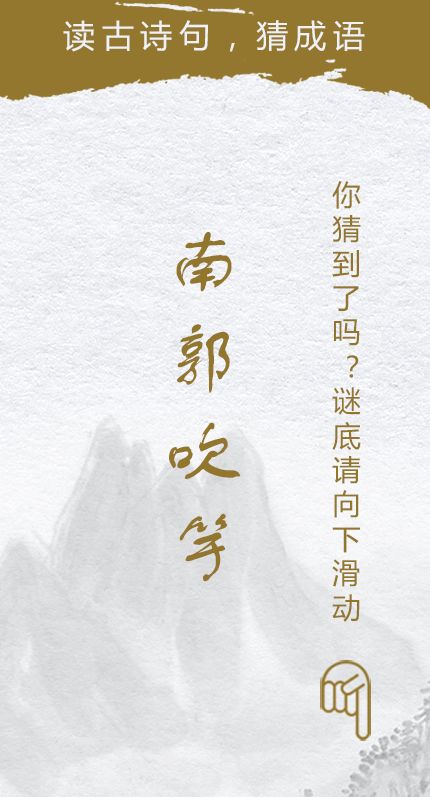 读古诗句，猜成语
你猜到了吗？谜底请向下滑动
南郭吹竽